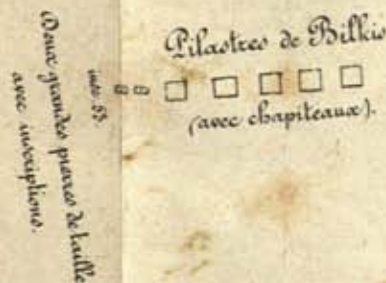 Pilastres de Bilkis
(avec chapiteaux).
insc. 53.
Deux grandes pierres de taille
avec inscriptions.